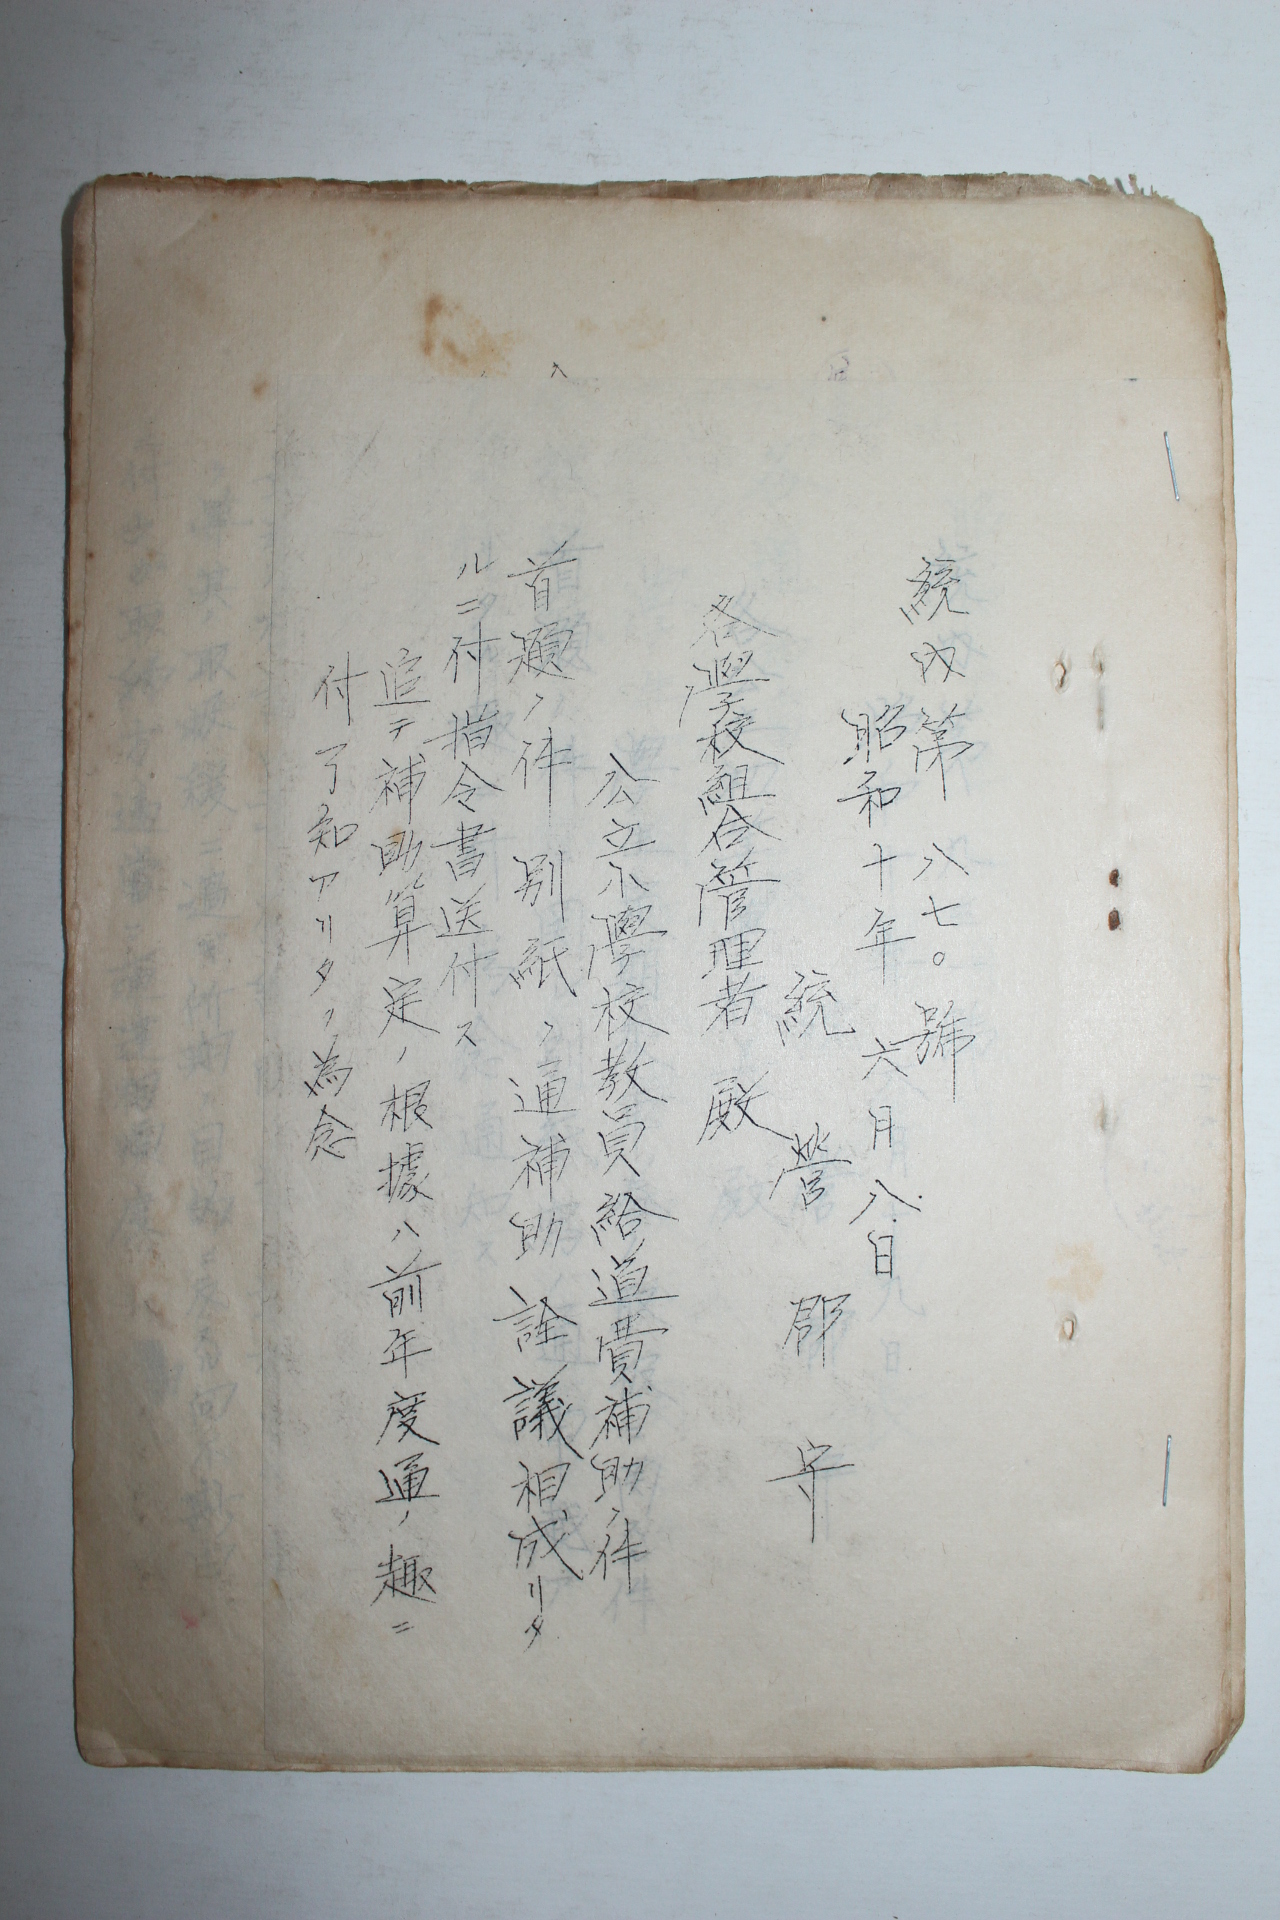 統内第八七〇號
昭和十年六月八日
統營郡守
各學校組合管理者殿
公立小學校教員給道費補助ノ件
首題ノ件別紙ノ通補助詮議相成リタ
ルニ付指令書送付ス
追テ補助算定ノ根據ハ前年度通ノ趣ニ
付了知アリタノ為念